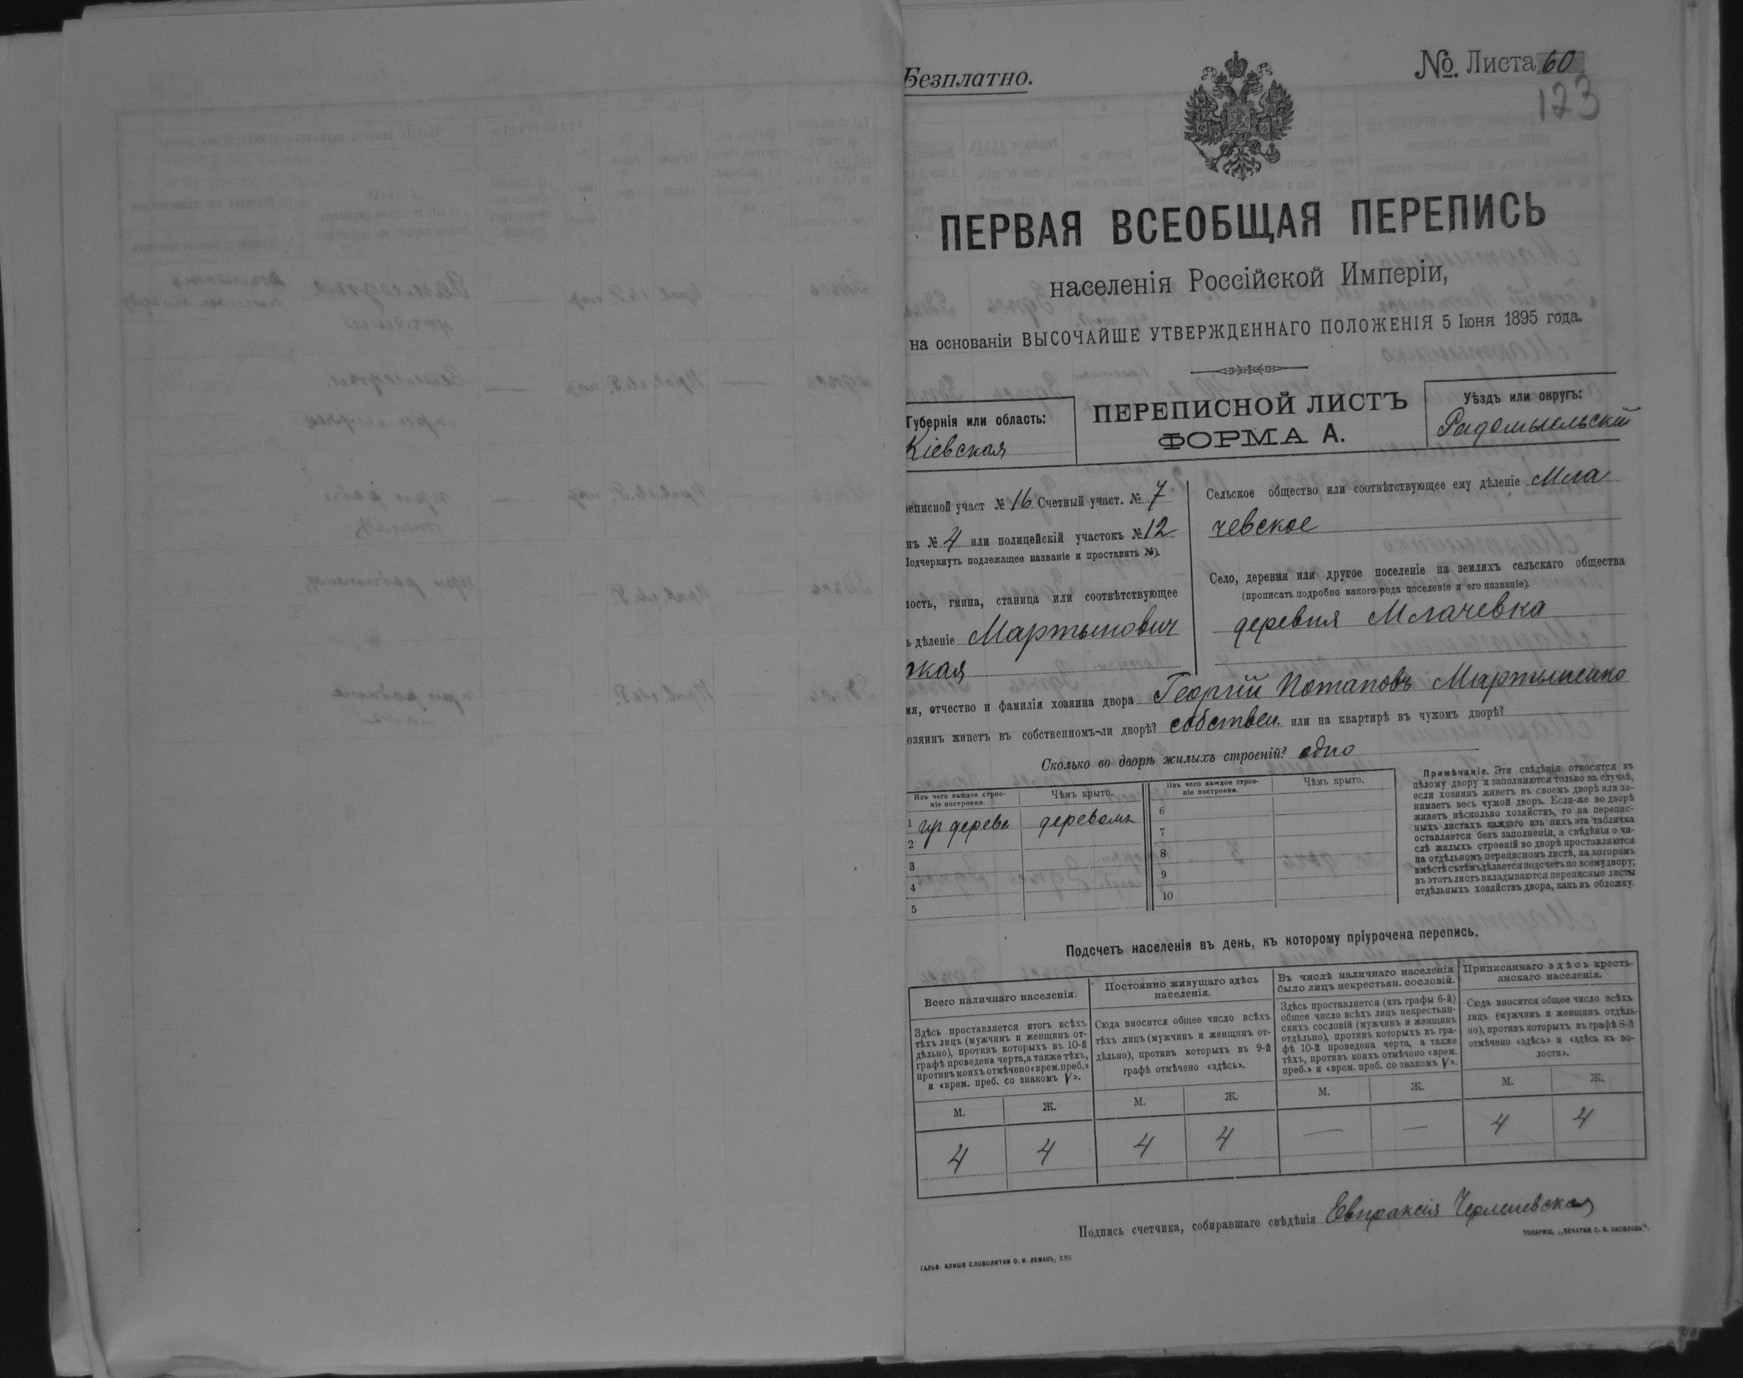 Безплатно.
№. Листа 60
123
ПЕРВАЯ ВСЕОБЩАЯ ПЕРЕПИСЬ
населенія Россійской Имперіи,
на основаніи ВЫСОЧАЙШЕ УТВЕРЖДЕННАГО ПОЛОЖЕНІЯ 5 Іюня 1895 года.
Губернія или область:
Кіевская
ПЕРЕПИСНОЙ ЛИСТЪ
ФОРМА А.
Уѣздъ или округъ:
Радомысльскій
еписной участ № 16 Счетный участ. № 7
нъ № 4 или полицейскій участокъ № 12
Подчеркнуть подлежащее названіе и проставить №).
ость, гмина, станица или соотвѣтствующее
ь дѣленіе Мартынович
жая
Сельское общество или соотвѣтствующее ему дѣленіе Мла
чевское
Село, деревня или другое поселеніе на земляхъ сельскаго общества
(прописать подробно какого рода поселеніе и его названіе)
деревня Млачевка
мя, отчество и фамилія хозяина двора Георгій Потаповъ Мартыненко
озяинъ живетъ въ собственномъ-ли дворѣ? собствен. или на квартирѣ въ чужомъ дворѣ?
Сколько во дворѣ жилыхъ строеній? одно
Изъ чего каждое строе-
ніе построено.
Чѣмъ крыто.
1 деревомъ
2
3
4
5
Изъ чего каждое строе-
ніе построено.
Чѣмъ крыто.
6
7
8
9
10
Примѣчаніе. Эти свѣдѣнія относятся къ
цѣлому двору и заполняются только въ случаѣ,
если хозяинъ живетъ въ своемъ дворѣ или за-
нимаетъ весь чужой дворъ. Если-же во дворѣ
живетъ нѣсколько хозяйствъ, то на перепис-
ныхъ листахъ каждаго изъ нихъ эта табличка
оставляется безъ заполненія, а свѣдѣнія о чи-
слѣ жилыхъ строеній во дворѣ проставляются
на отдѣльномъ переписномъ листѣ, на которомъ
вмѣстѣ съ тѣмъ дѣлается подсчетъ по всему двору;
въ этотъ листъ вкладываются переписные листы
отдѣльныхъ хозяйствъ двора, какъ въ обложку.
Подсчетъ населенія въ день, къ которому пріурочена перепись.
Всего наличнаго населенія.
Здѣсь проставляется итогъ всѣхъ
тѣхъ лицъ (мужчинъ и женщинъ от-
дѣльно), противъ которыхъ въ 10-й
графѣ проведена черта, а также тѣхъ,
противъ коихъ отмѣчено «врем. преб.»
и «врем. преб. со знакомъ V».
М. Ж.
4 4
Постоянно живущаго здѣсь
населенія.
Сюда вносится общее число всѣхъ
тѣхъ лицъ (мужчинъ и женщинъ от-
дѣльно), противъ которыхъ въ 9-й
графѣ отмѣчено «здѣсь».
М. Ж.
4 4
Въ числѣ наличнаго населенія
было лицъ некрестьян. сословій.
Здѣсь проставляется (изъ графы 6-й)
общее число всѣхъ лицъ некрестьян-
скихъ сословій (мужчинъ и женщинъ
отдѣльно), противъ которыхъ въ гра-
фѣ 10-й проведена черта, а также
тѣхъ, противъ коихъ отмѣчено «врем.
преб.» и «врем. преб. со знакомъ V».
М. Ж.
— —
Приписаннаго здѣсь кресть-
янскаго населенія.
Сюда вносится общее число всѣхъ
лицъ (мужчинъ и женщинъ отдѣль-
но), противъ которыхъ въ графѣ 8-й
отмѣчено «здѣсь» и «здѣсь къ во-
лости».
М. Ж.
4 4
Подпись счетчика, собиравшаго свѣдѣнія Евпраксія
ГАЛЬВ. КЛИШЕ СЛОВОЛИТНИ О. И. ЛЕМАНЪ, СПБ.